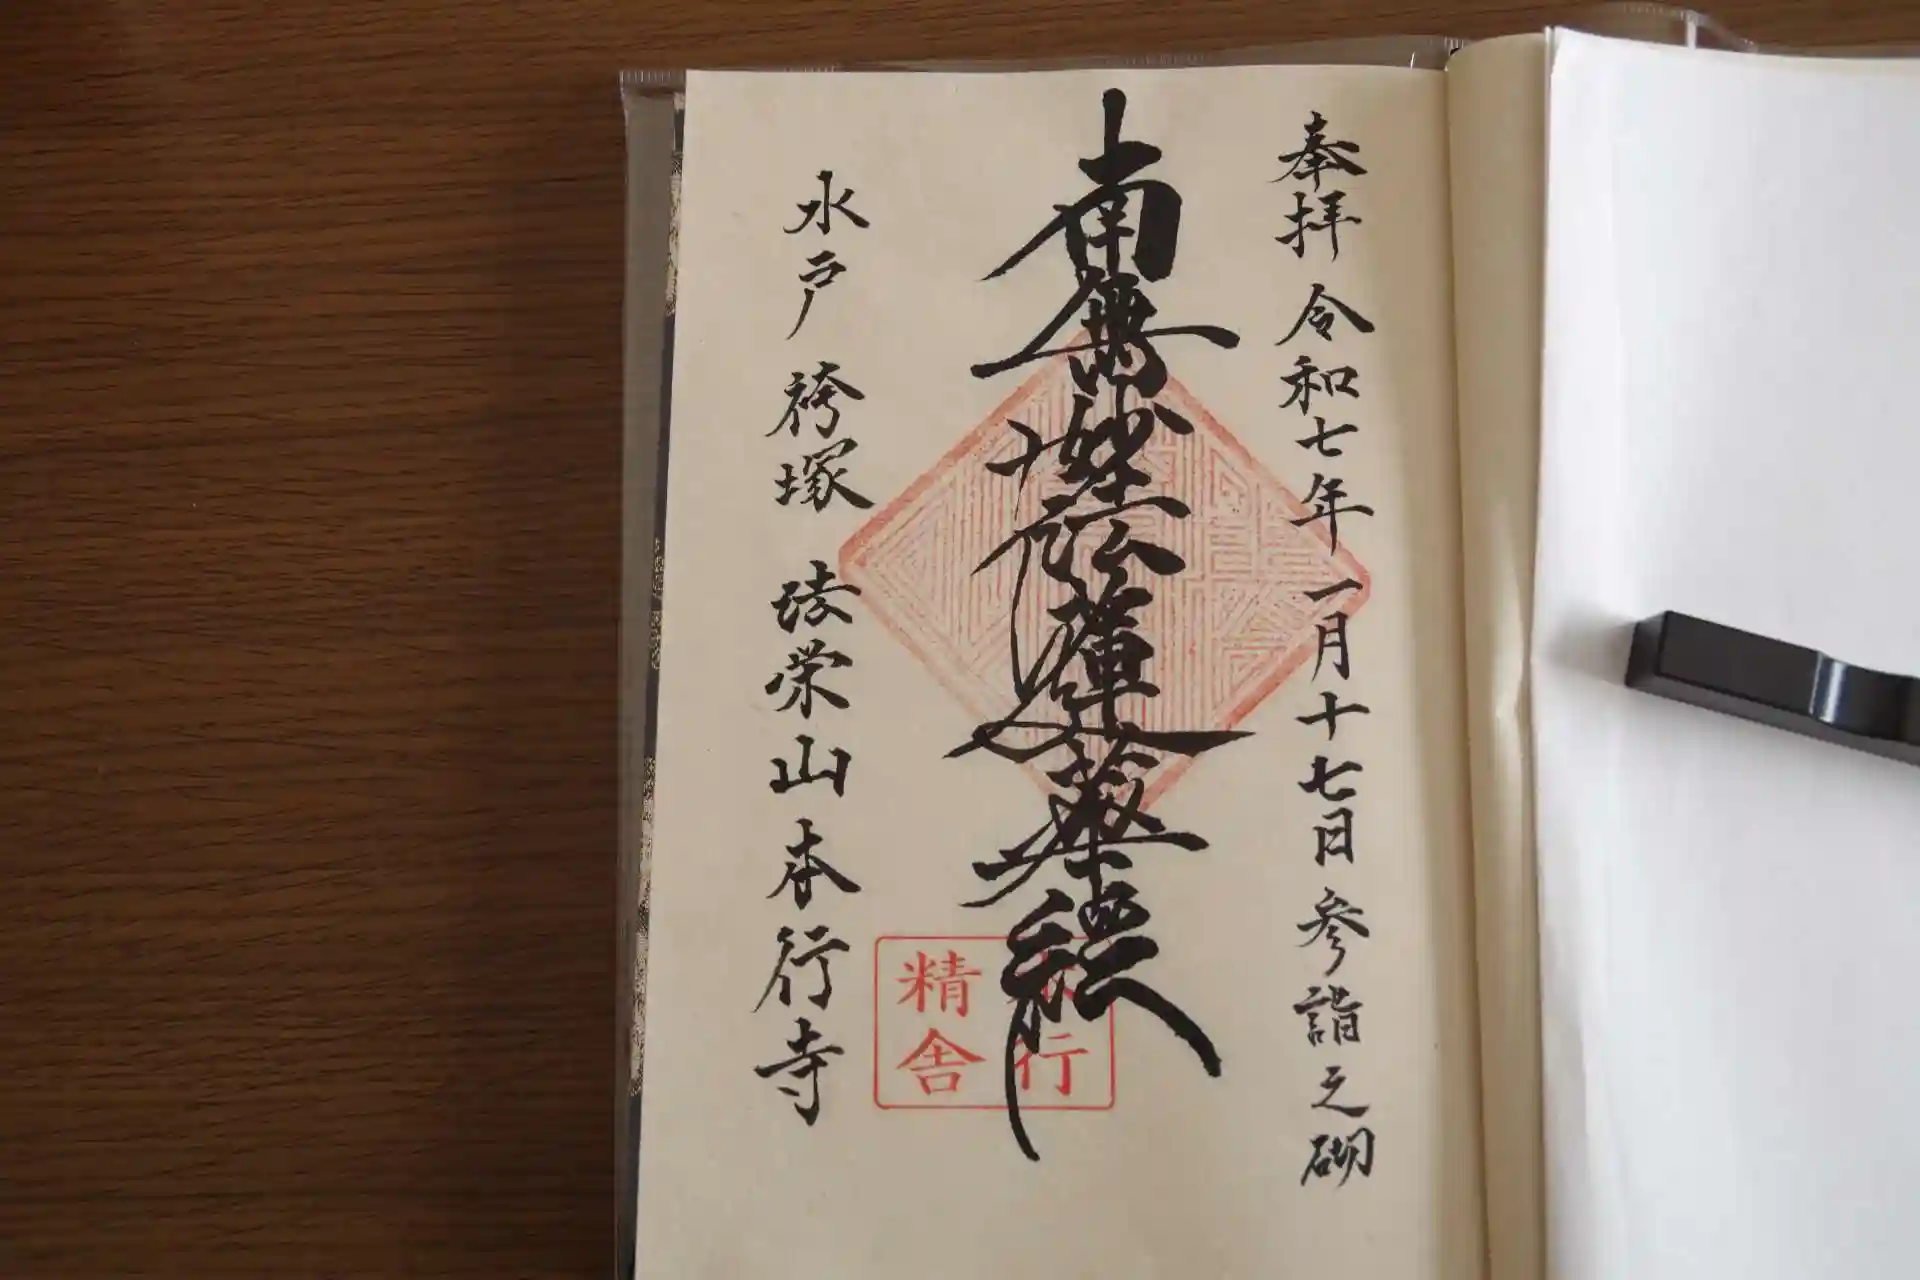 奉拝 令和七年 一月十七日 参詣之砌
南無妙法蓮華経
水戸 袴塚 栄山 本行寺
行
精舎